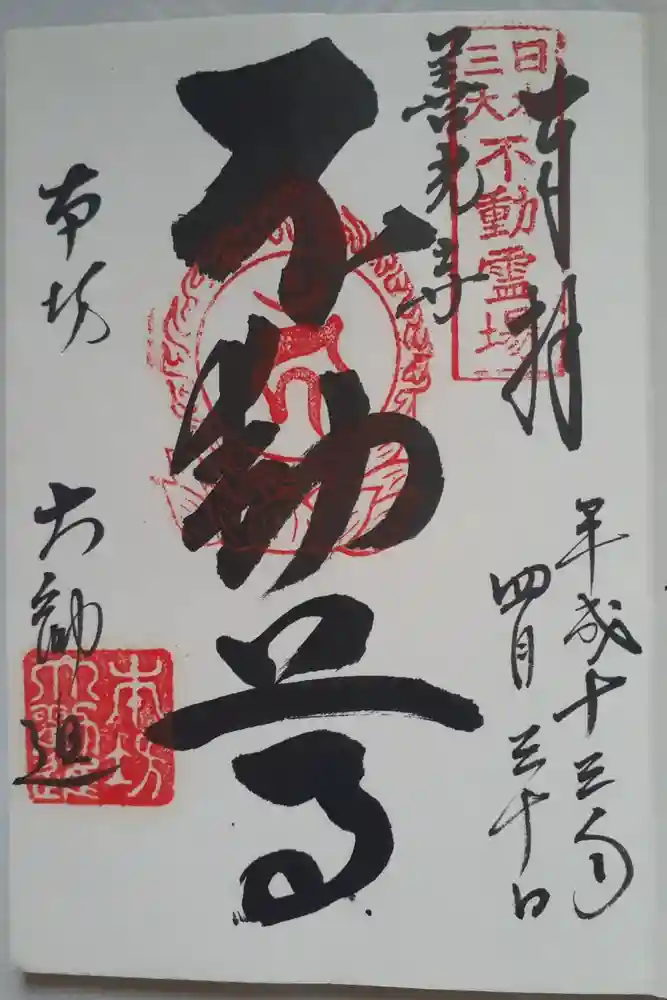 奉拝
平成十三年
四月三十日
日本三大不動霊場
善光寺
不動尊
本坊 大勧進
本坊
大勧進